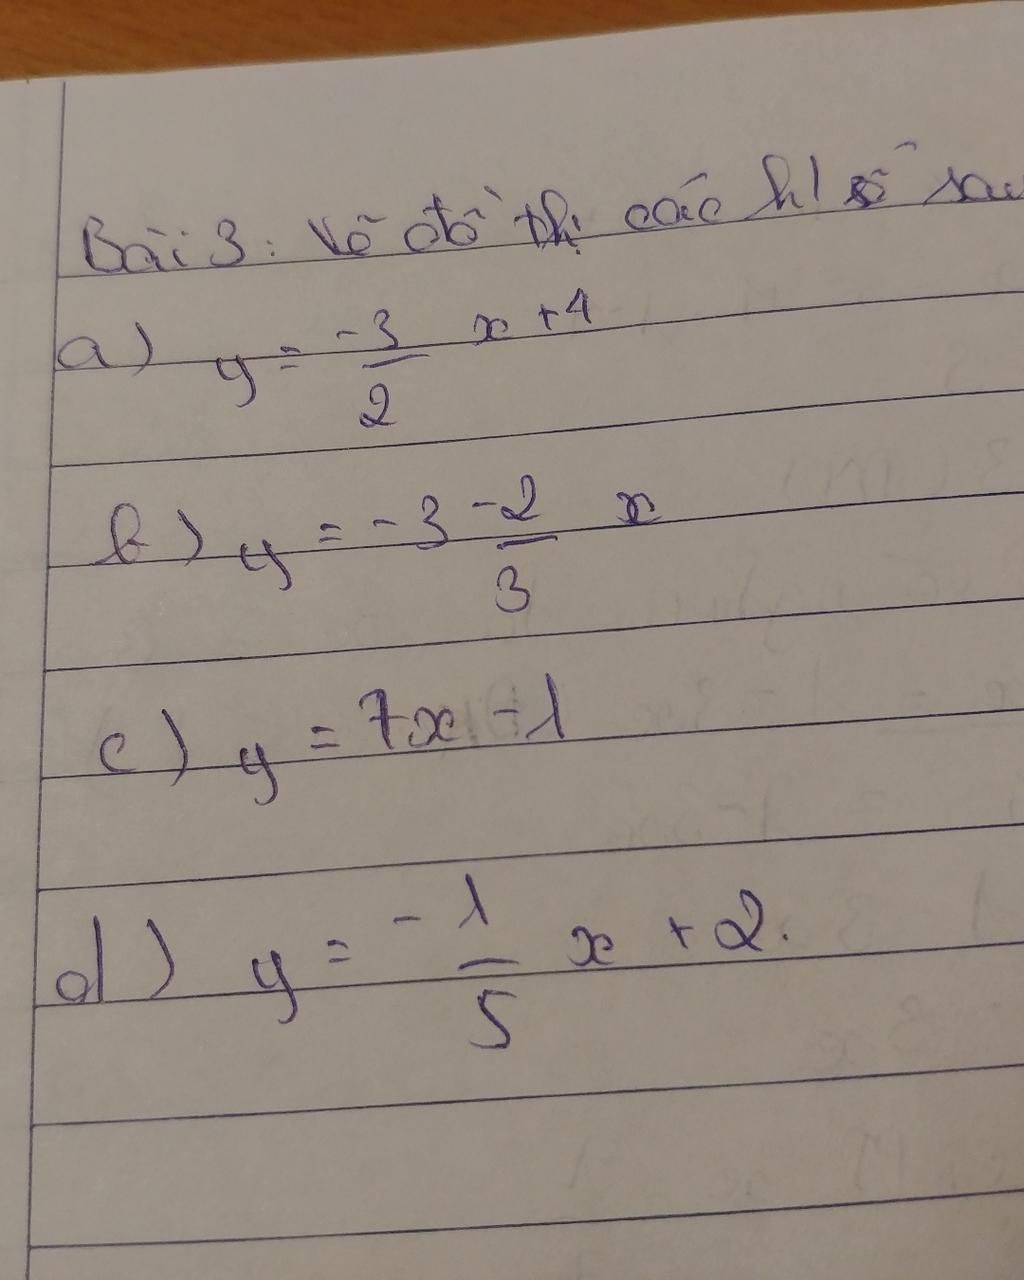 Bài 3: Vẽ đồ thị các h/ số sau
a) y = -3/2 x + 4
b) y = -3 -2/3 x
c) y = 7x - 1
d) y = -1/5 x + 2.